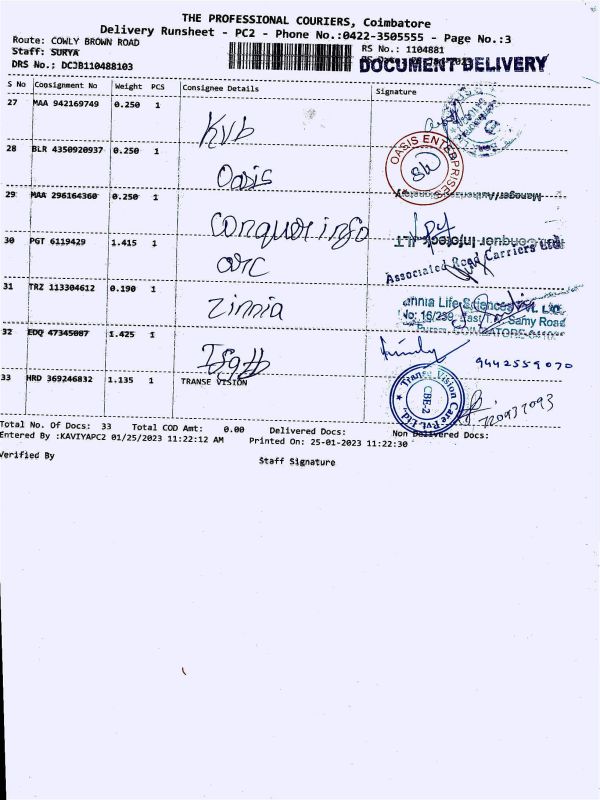 THE PROFESSIONAL COURIERS, Coimbatore
Delivery Runsheet - PC2 - Phone No.:0422-3505555 - Page No.:3
Route: COWLY BROWN ROAD
RS No.: 1104881
Staff: SURYA
DOCUMENT DELIVERY
DRS No.: DCJB110488103
S No Consignment No Weight PCS Consignee Details Signature
27 MAA 942169749 0.250 1 Kvb
28 BLR 4350920937 0.250 1 Oasis OASIS ENTERPRISES
29 MAA 296164360 0.250 1 Conquer info
Manager/Authorised Signatory
30 PGT 6119429 1.415 1 arc
Conquer Infotech
Associated Road Carriers Ltd
31 TRZ 113304612 0.190 1 Zinnia
Life Sciences Pvt. Ltd.
No: 16/239, East T.V. Samy Road
32 EDQ 47345087 1.425 1
9442559070
33 HRD 369246832 1.135 1 TRANSE VISION
Transe Vision Care Pvt. Ltd. CBE-2
Total No. Of Docs: 33 Total COD Amt: 0.00 Delivered Docs: Non Delivered Docs:
Entered By :KAVIYAPC2 01/25/2023 11:22:12 AM Printed On: 25-01-2023 11:22:30
Verified By
Staff Signature